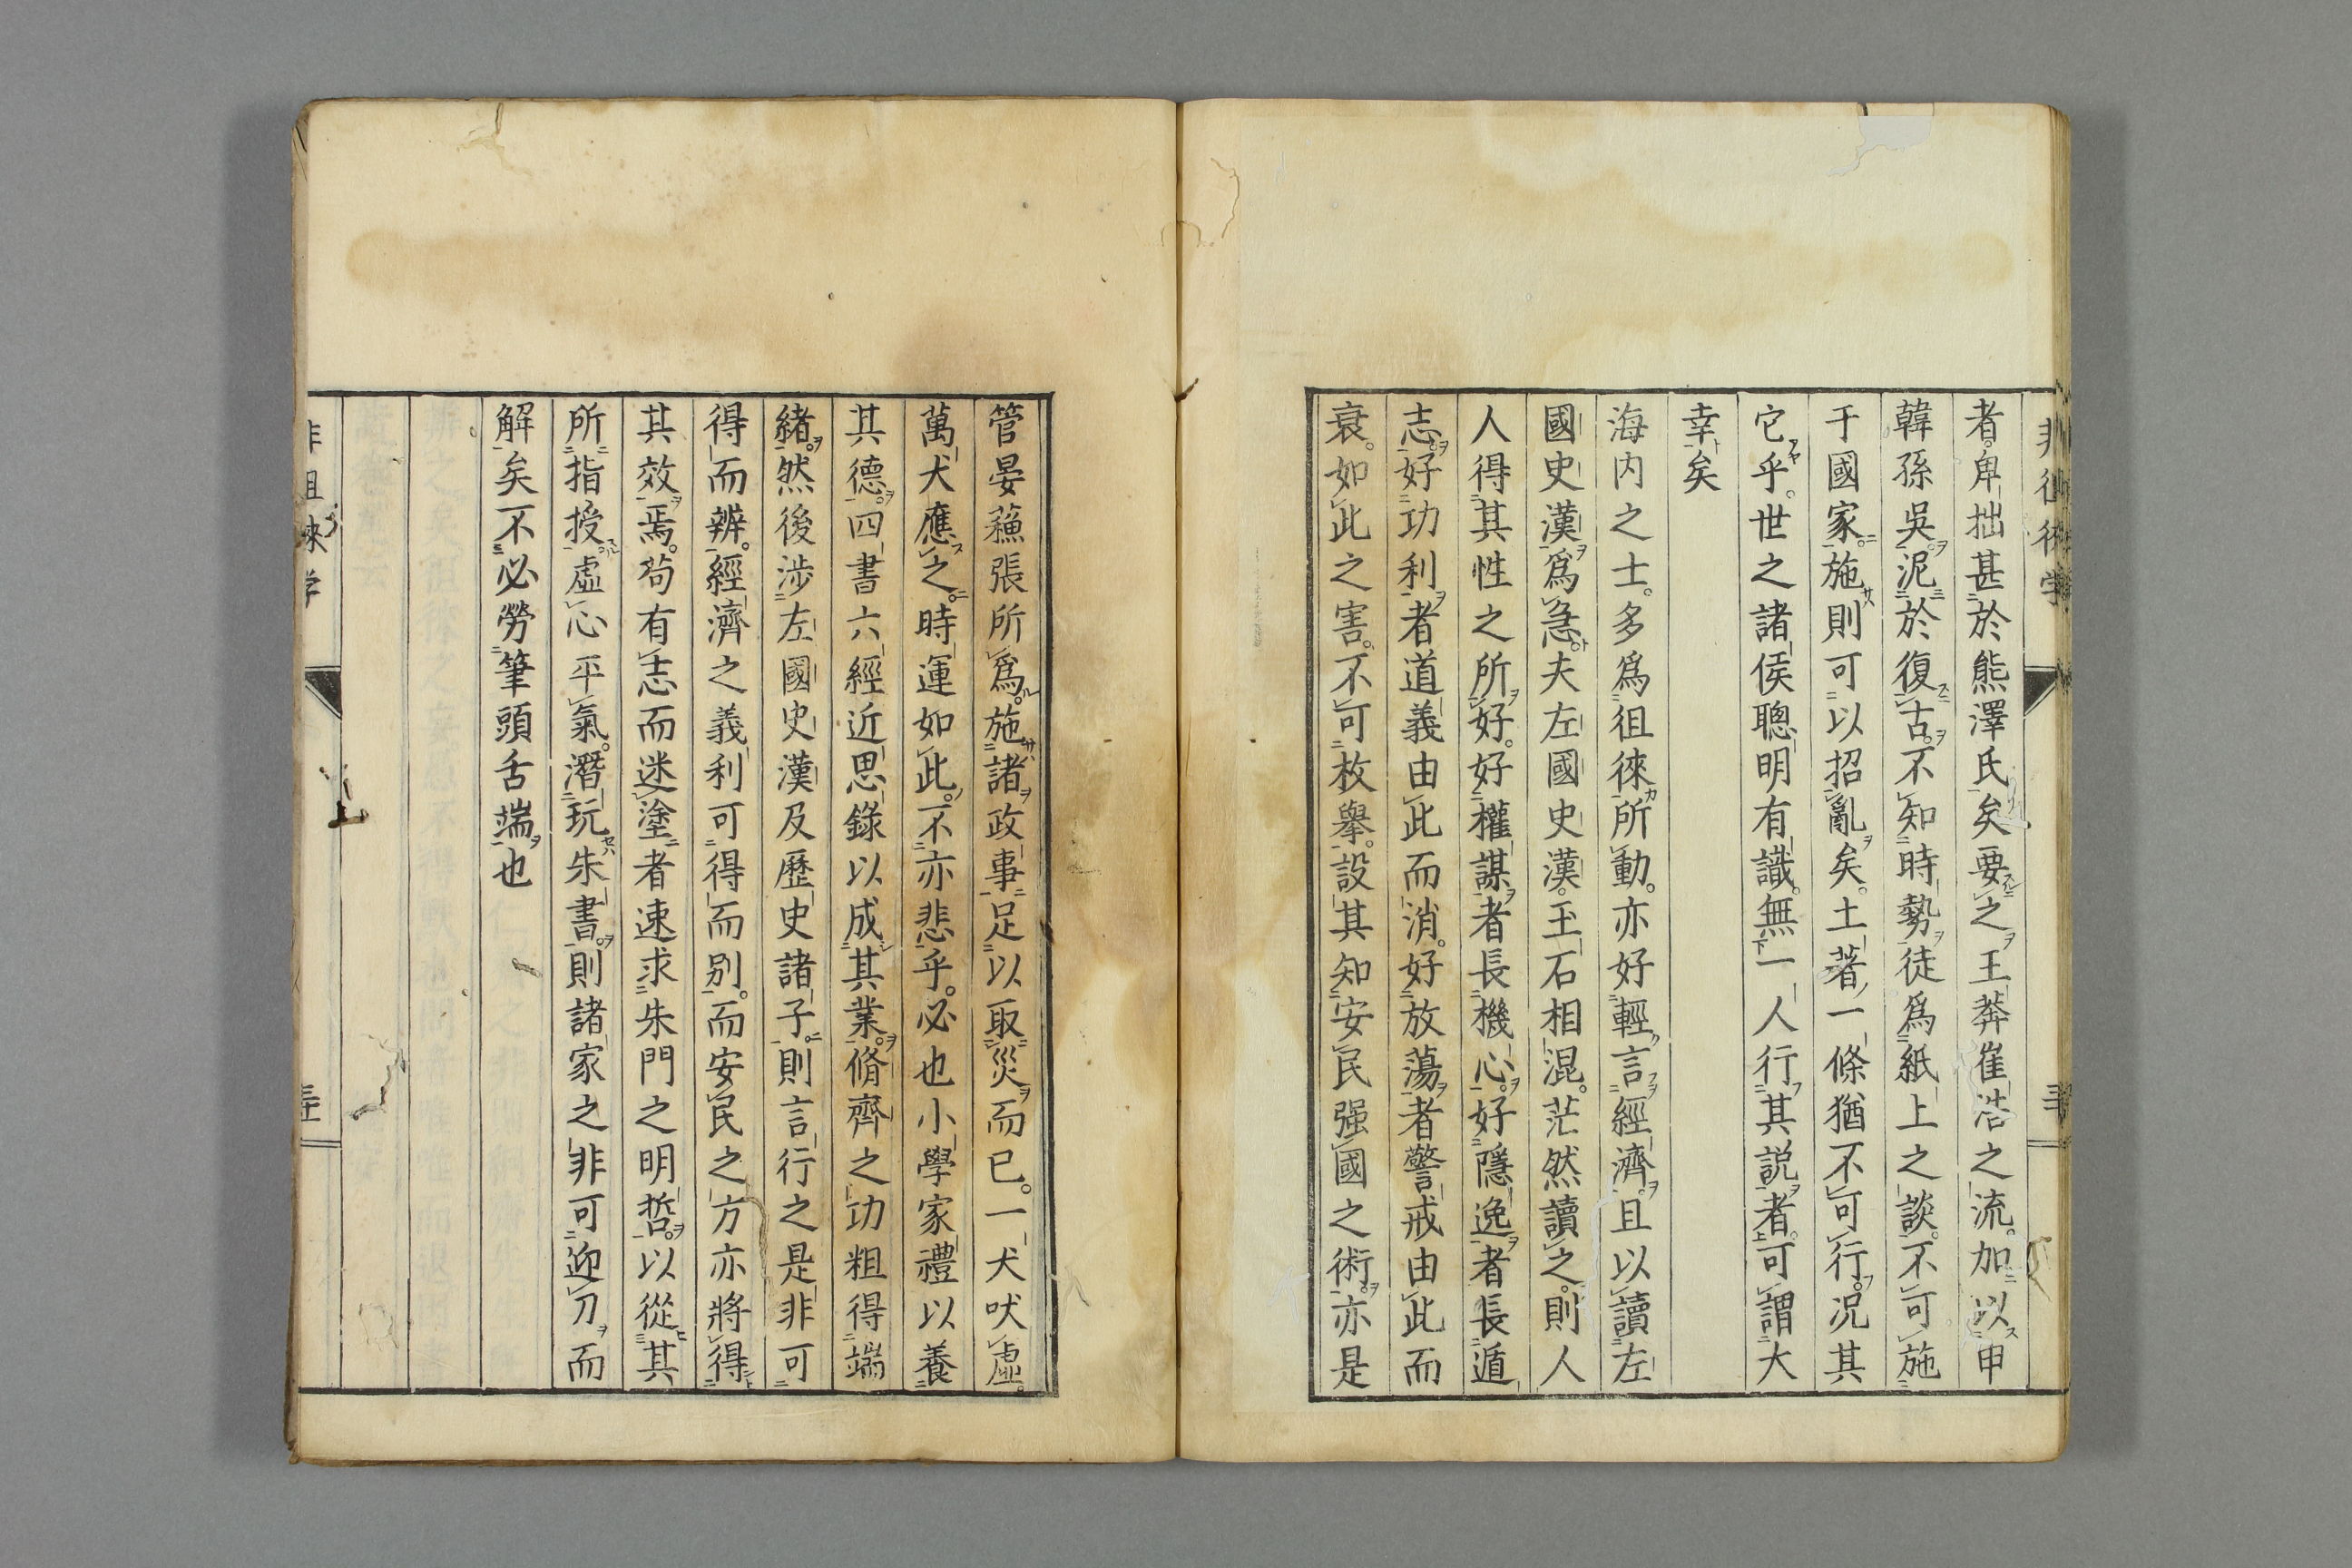 非徂徠学
者。卑拙甚於熊澤氏矣要之王莽崔浩之流。加以申
韓孫吳。泥於復古。不知時勢徒為紙上之談。不可施
于國家。施則可以招亂矣。土著一條猶不可行。况其
它乎。世之諸侯聰明有識。無一人行其説者。可謂大
幸矣
海内之士。多為徂徠所動。亦好輕言經濟。且以讀左
國史漢為急。夫左國史漢。玉石相混。茫然讀之。則人
人得其性之所好。好權謀者長機心。好隱逸者長遁
志。好功利者道義由此而消。好放蕩者警戒由此而
衰。如此之害。不可枚舉。設其知安民强國之術。亦是
管晏蘓張所爲。施諸政事足以取災而已。一犬吠虛。
萬犬應之。時運如此。不亦悲乎。必也小學家禮以養
其德。四書六經近思錄以成其業。脩齊之功粗得端
緒。然後涉左國史漢及歷史諸子。則言行之是非可
得而辨。經濟之義利可得而別。而安民之方亦將得
其效焉。苟有志而迷塗者速求朱門之明哲。以從其
所指授。虛心平氣。潛玩朱書。則諸家之非可迎刀而
解矣不必勞筆頭舌端也
非徂徠学